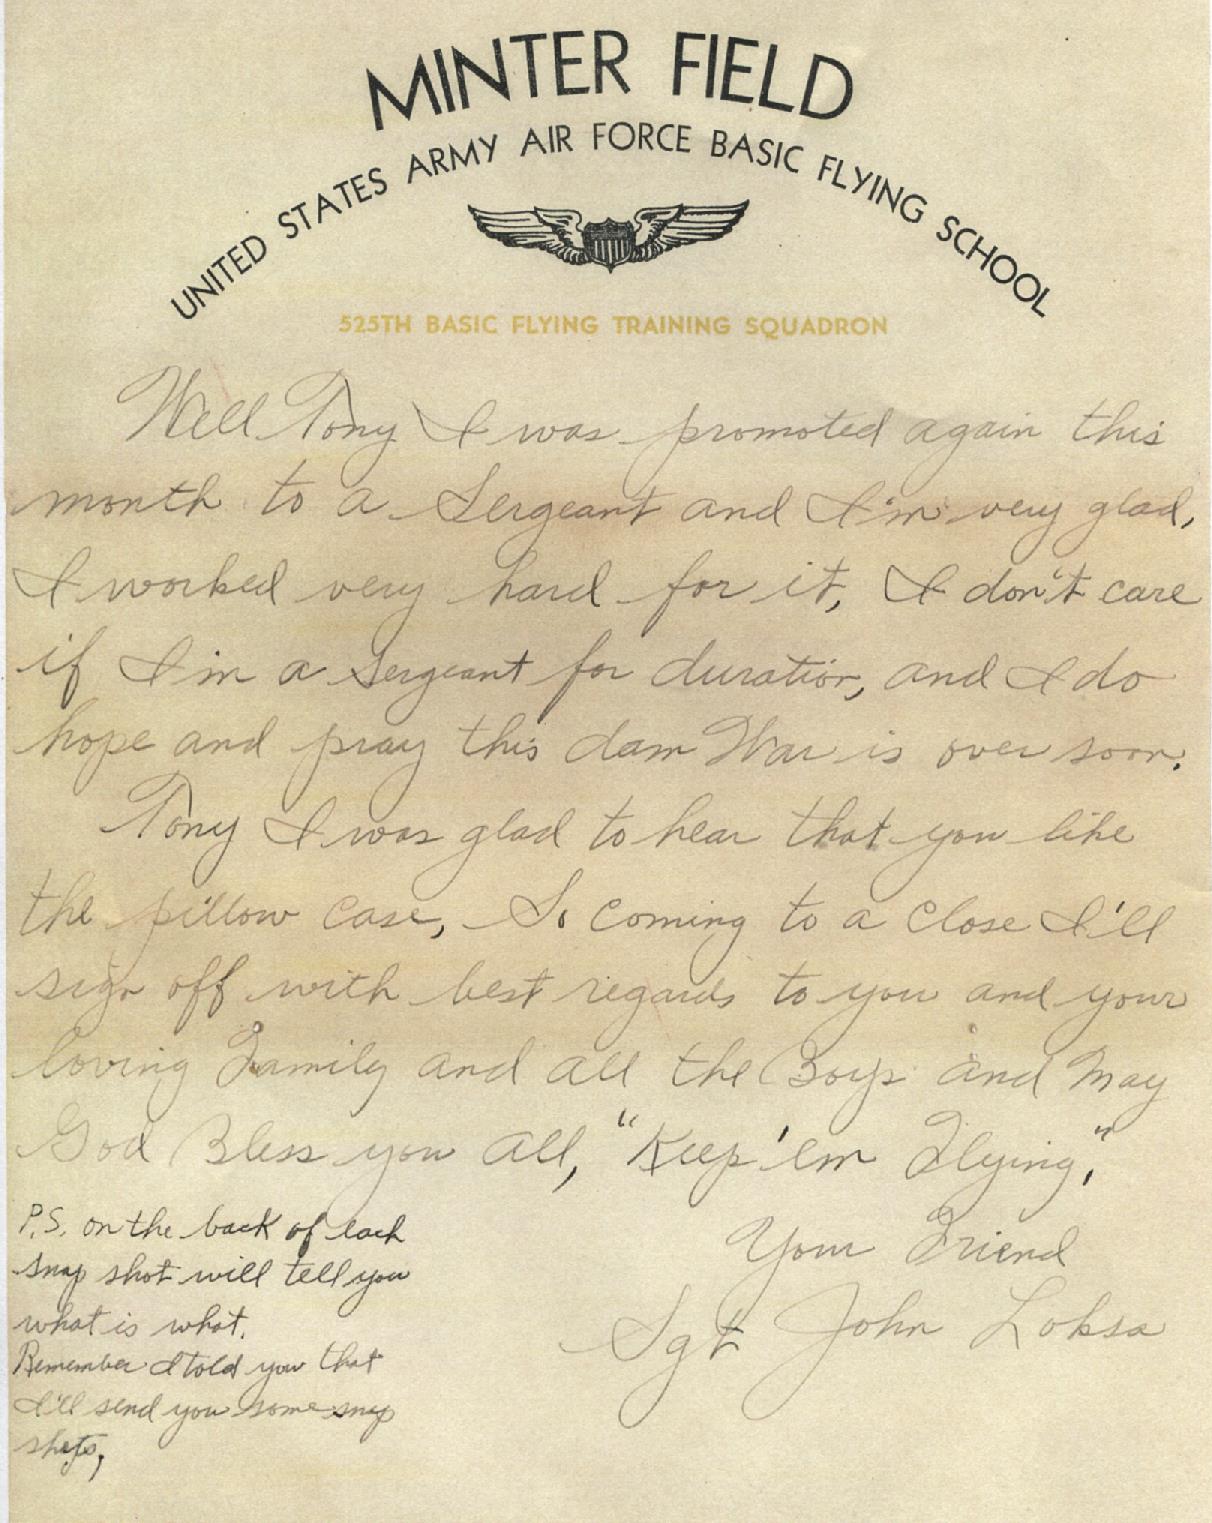 MINTER FIELD
UNITED STATES ARMY AIR FORCE BASIC FLYING SCHOOL
525TH BASIC FLYING TRAINING SQUADRON
Well Tony I was promoted again this
month to a Sergeant and I'm very glad,
I worked very hard for it, I don't care
if I'm a Sergeant for duration, and I do
hope and pray this dam War is over soon.
Tony I was glad to hear that you like
the pillow case, So coming to a close I'll
sign off with best regards to you and your
loving Family and all the Boys and May
God Bless you all, "Keep 'em Flying,"
Your Friend
Sgt John Loksa
P.S. on the back of each
snap shot will tell you
what is what.
Remember I told you that
I'll send you some snap
shots,